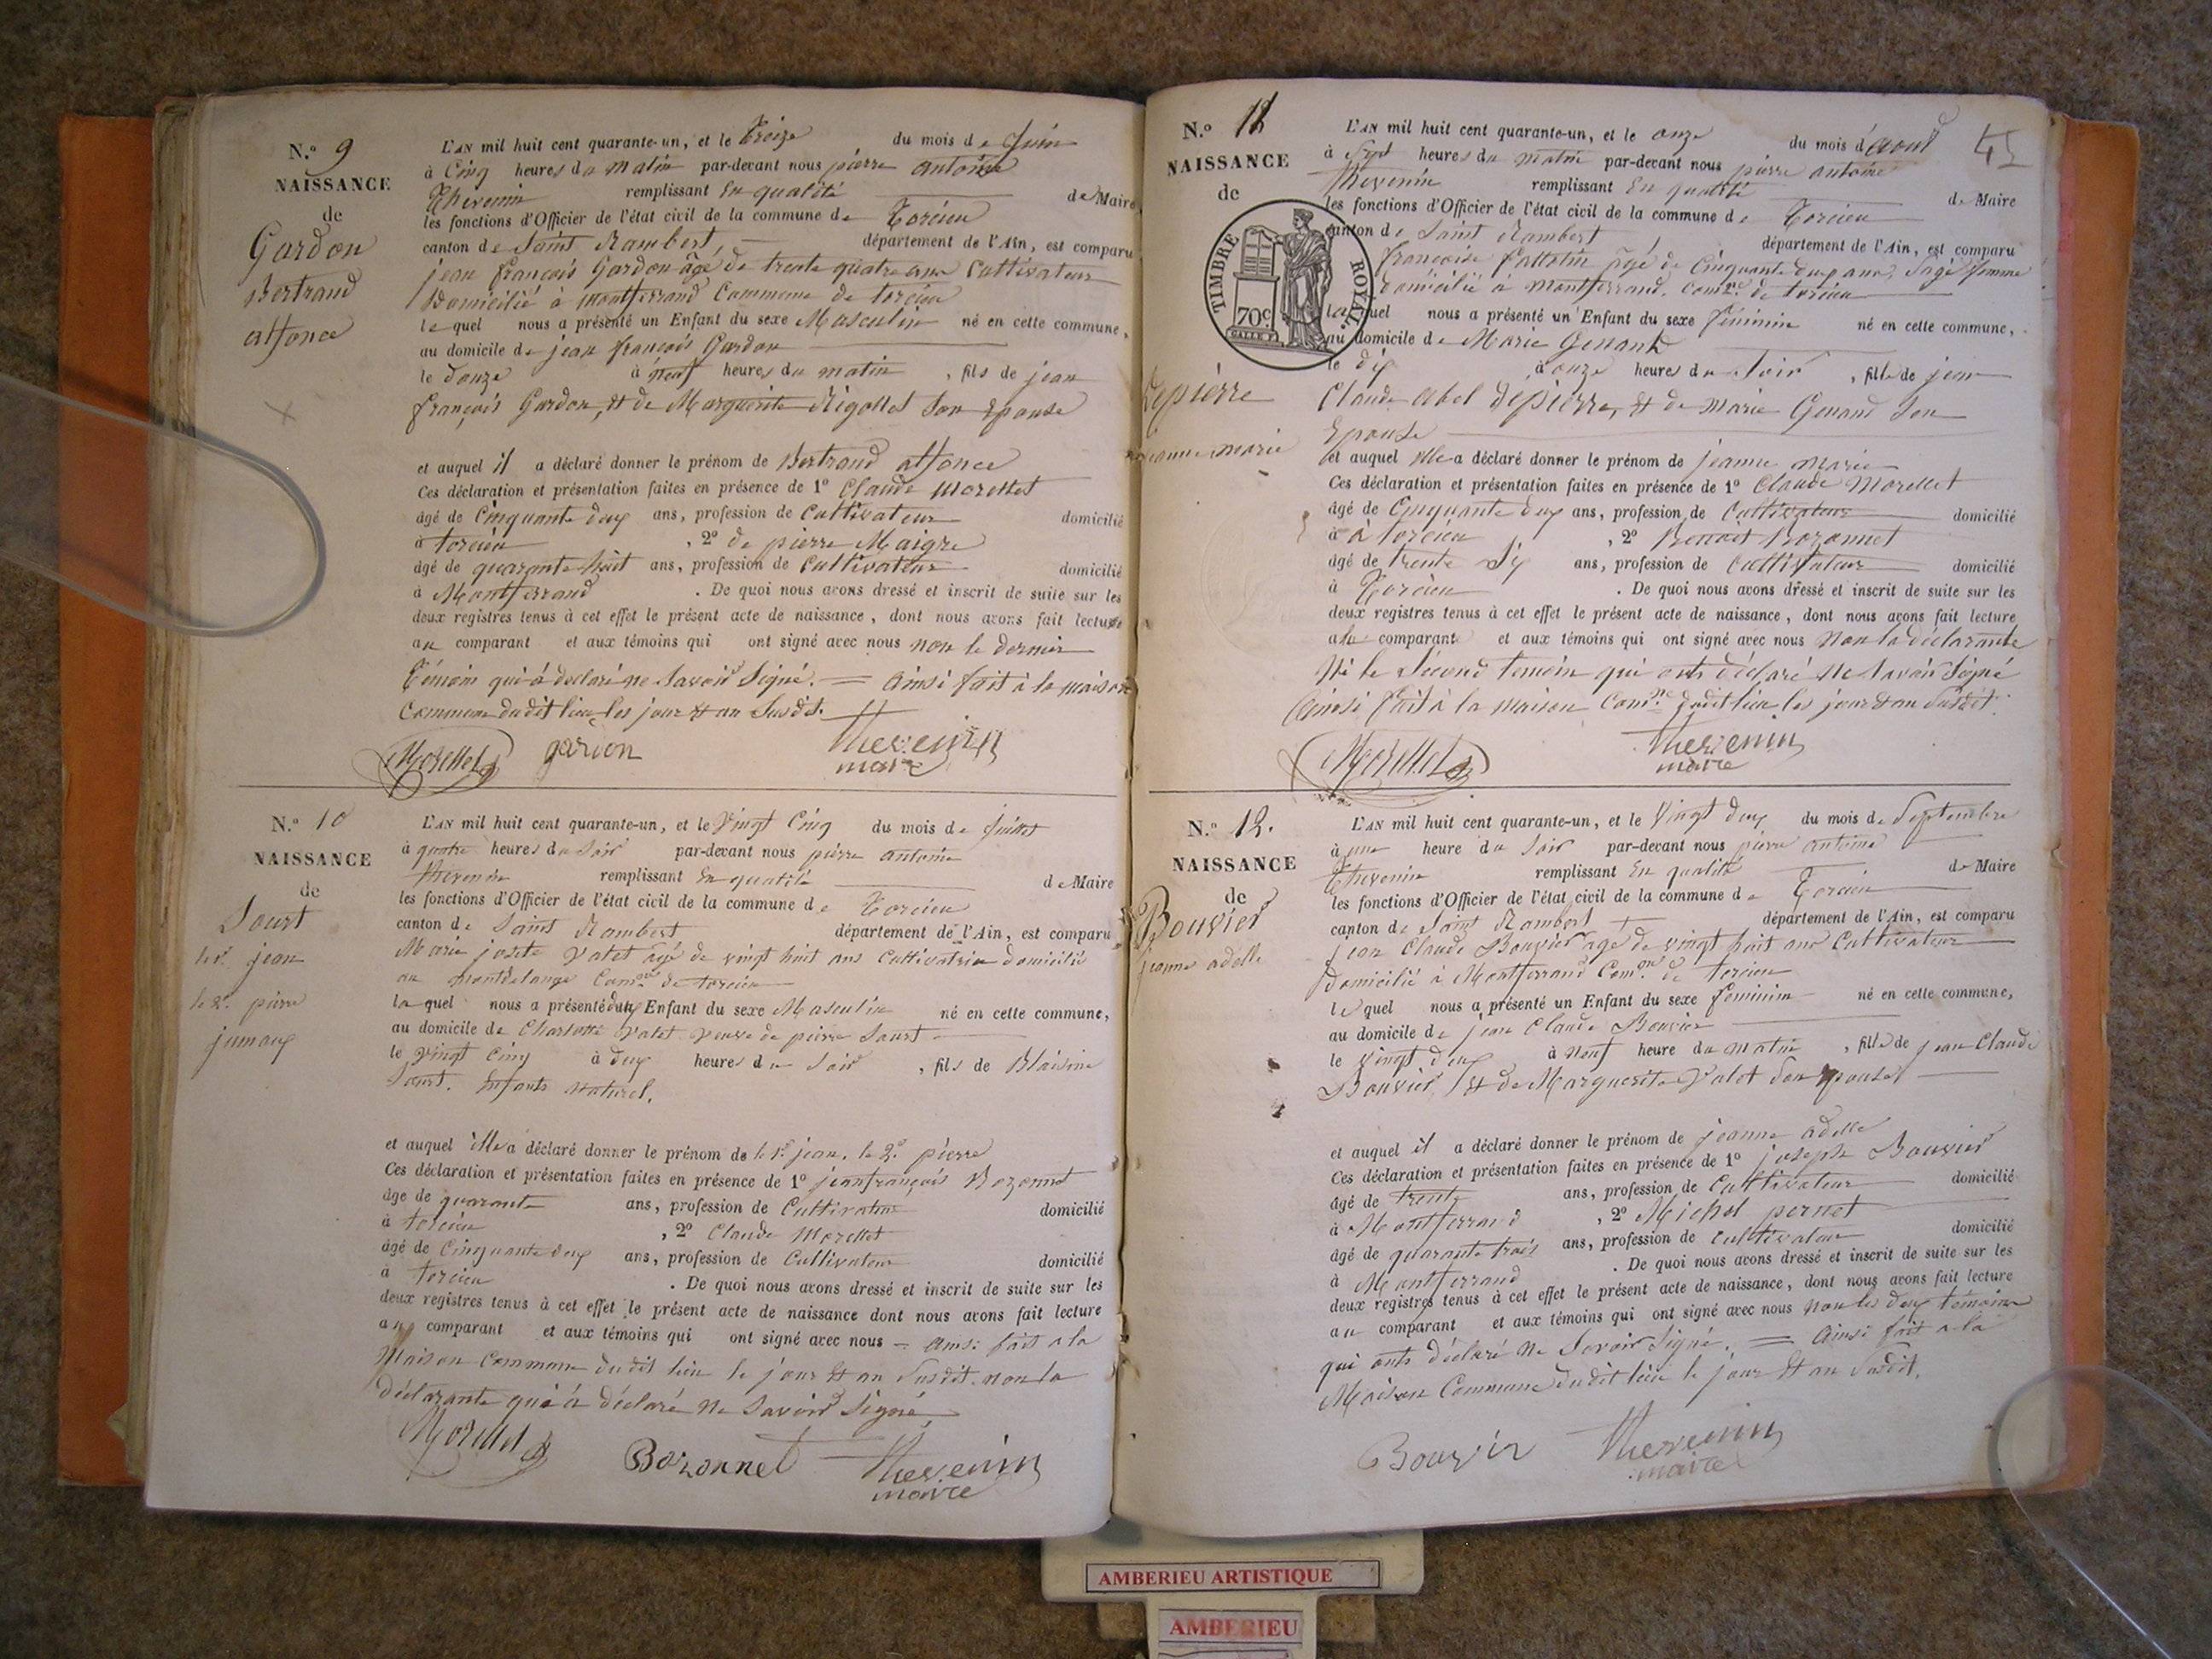 N.º 9
NAISSANCE
de
Gardon
Bertrand
alfonce
L'AN mil huit cent quarante-un, et le treize du mois de Juin
à Cinq heures du matin par-devant nous pierre antoine
Thevenin remplissant En qualité de Maire
les fonctions d'Officier de l'état civil de la commune de Torcieu
canton de Saint Rambert, département de l'Ain, est comparu
jean françois Gardon âgé de trente quatre ans Cultivateur
Domicilié à montferrand Commune de torcieu
lequel nous a présenté un Enfant du sexe Masculin né en cette commune,
au domicile de jean françois Gardon
le douze à neuf heures du matin, fils de jean
françois Gardon, et de Marguerite Rigollet Son Epouse
et auquel il a déclaré donner le prénom de Bertrand alfonce
Ces déclaration et présentation faites en présence de 1º Claude Morellet
âgé de Cinquante deux ans, profession de Cultivateur domicilié
à torcieu, 2º de pierre Maigre
âgé de quarante huit ans, profession de Cultivateur domicilié
à Montferrand. De quoi nous avons dressé et inscrit de suite sur les
deux registres tenus à cet effet le présent acte de naissance, dont nous avons fait lecture
au comparant et aux témoins qui ont signé avec nous non le dernier
Témoin qui à declaré ne Savoir Signé. = ainsi fait à la maison
Commune dudit lieu les jour et an Susdit.
Morellet garion Thevenin
maire
N.º 10
NAISSANCE
de
Sourt
le 1er jean
le 2e pierre
jumaux
L'AN mil huit cent quarante-un, et le vingt Cinq du mois de Juillet
à quatre heures du Soir par-devant nous pierre antoine
thevenin remplissant En qualité de Maire
les fonctions d'Officier de l'état civil de la commune de Torcieu
canton de Saint Rambert département de l'Ain, est comparu
Marie josete Valet âgé de vingt huit ans Cultivatrice domicilié
au Comne de torcieu
laquel nous a présenté deux Enfant du sexe Masculin né en cette commune,
au domicile de Charlotte Valet veuve de pierre Sourt
le vingt Cinq à deux heures du Soir, fils de Blaisine
Sourt. Enfants naturel.
et auquel elle a déclaré donner le prénom de le 1er jean. le 2e pierre
Ces déclaration et présentation faites en présence de 1º jean françois Bozonnet
âgé de quarante ans, profession de Cultivateur domicilié
à torcieu, 2º Claude Morellet
âgé de Cinquante deux ans, profession de Cultivateur domicilié
à torcieu. De quoi nous avons dressé et inscrit de suite sur les
deux registres tenus à cet effet le présent acte de naissance dont nous avons fait lecture
aux comparant et aux témoins qui ont signé avec nous = ainsi fait a la
Maison Commune dudit lieu le jour et an Susdit. non la
déclarante qui à déclaré ne Savoir Signé
Morellet Bozonnet Thevenin
maire
45
N.º 11
NAISSANCE
de
TIMBRE ROYAL
70c
Depierre
jeanne marie
L'AN mil huit cent quarante-un, et le onze du mois d'aout
à Sept heures du matin par-devant nous pierre antoine
thevenin remplissant En qualité de Maire
les fonctions d'Officier de l'état civil de la commune de Torcieu
canton de Saint Rambert département de l'Ain, est comparu
françoise âgé de Cinquante deux ans, Sage femme
Domicilié à Montferrand. Comne de torcieu
laquel nous a présenté un Enfant du sexe féminin né en cette commune,
au domicile de Marie Genand
le dix à onze heures du Soir, fille de jean
Claude abel Depierre, et de Marie Genand Son
Epouse
et auquel elle a déclaré donner le prénom de jeanne marie
Ces déclaration et présentation faites en présence de 1º Claude Morellet
âgé de Cinquante deux ans, profession de Cultivateur domicilié
à à torcieu, 2º Benoit Bozonnet
âgé de trente Six ans, profession de Cultivateur domicilié
à Torcieu. De quoi nous avons dressé et inscrit de suite sur les
deux registres tenus à cet effet le présent acte de naissance, dont nous avons fait lecture
a la comparante et aux témoins qui ont signé avec nous Non la déclarante
Ni le Second temoin qui onts déclaré ne Savoir Signé
Ainsi fait à la maison Comne dudit lieu les jour et an Susdit.
Morellet Thevenin
maire
N.º 12.
NAISSANCE
de
Bouvier
jeanne adelle
L'AN mil huit cent quarante-un, et le Vingt deux du mois de Septembre
à une heure du Soir par-devant nous pierre antoine
Thevenin remplissant En qualité de Maire
les fonctions d'Officier de l'état civil de la commune de Torcieu
canton de Saint Rambert département de l'Ain, est comparu
jean Claude Bouvier age de vingt huit ans Cultivateur
Domicilié à Montferrand Comne de torcieu
lequel nous a présenté un Enfant du sexe feminin né en cette commune,
au domicile de jean Claude Bouvier
le vingt deux à neuf heure du matin, fille de jean Claude
Bouvier, et de Marguerite Valet Son Epouse
et auquel il a déclaré donner le prénom de jeanne adelle
Ces déclaration et présentation faites en présence de 1º joseph Bouvier
âgé de trente ans, profession de Cultivateur domicilié
à Montferrand, 2º Michel pernet
âgé de quarante trois ans, profession de Cultivateur domicilié
à Montferrand. De quoi nous avons dressé et inscrit de suite sur les
deux registres tenus à cet effet le présent acte de naissance, dont nous avons fait lecture
au comparant et aux témoins qui ont signé avec nous non les deux témoins
qui onts déclaré ne Savoir Signé. = ainsi fait a la
Maison Commune dudit lieu le jour et an Susdit.
Bouvier Thevenin
maire
AMBERIEU ARTISTIQUE
AMBERIEU